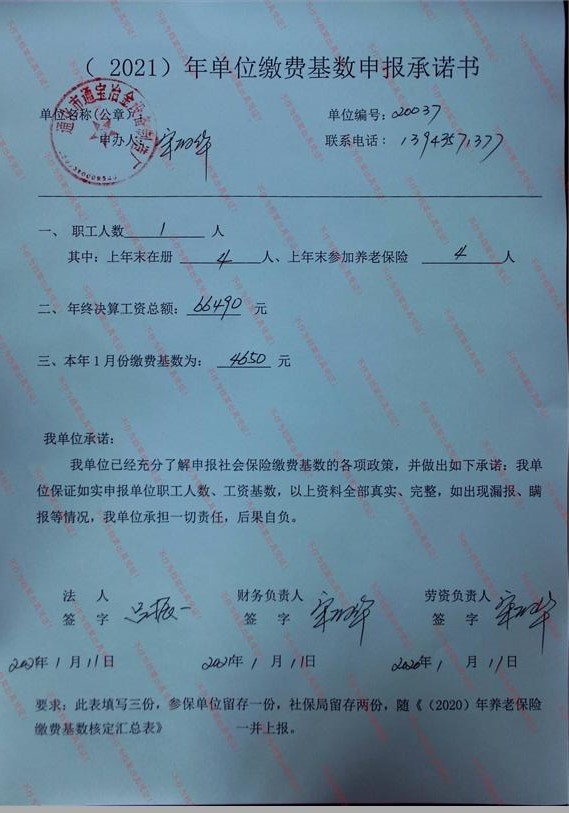 （ 2021）年单位缴费基数申报承诺书
单位名称(公章)
单位编号：020037
申办人：
联系电话：13943571377
一、 职工人数 1 人
其中：上年末在册 4 人、上年末参加养老保险 4 人
二、 年终决算工资总额：66490 元
三、本年1月份缴费基数为： 4650 元
我单位承诺：
我单位已经充分了解申报社会保险缴费基数的各项政策，并做出如下承诺：我单
位保证如实申报单位职工人数、工资基数，以上资料全部真实、完整，如出现漏报、瞒
报等情况，我单位承担一切责任，后果自负。
法 人 财务负责人 劳资负责人
签 字 签 字 签 字
2021年 1 月 11日 2021年 1 月 11日 2020年 1 月 11日
要求：此表填写三份，参保单位留存一份，社保局留存两份，随《（2020）年养老保险
缴费基数核定汇总表》 一并上报。